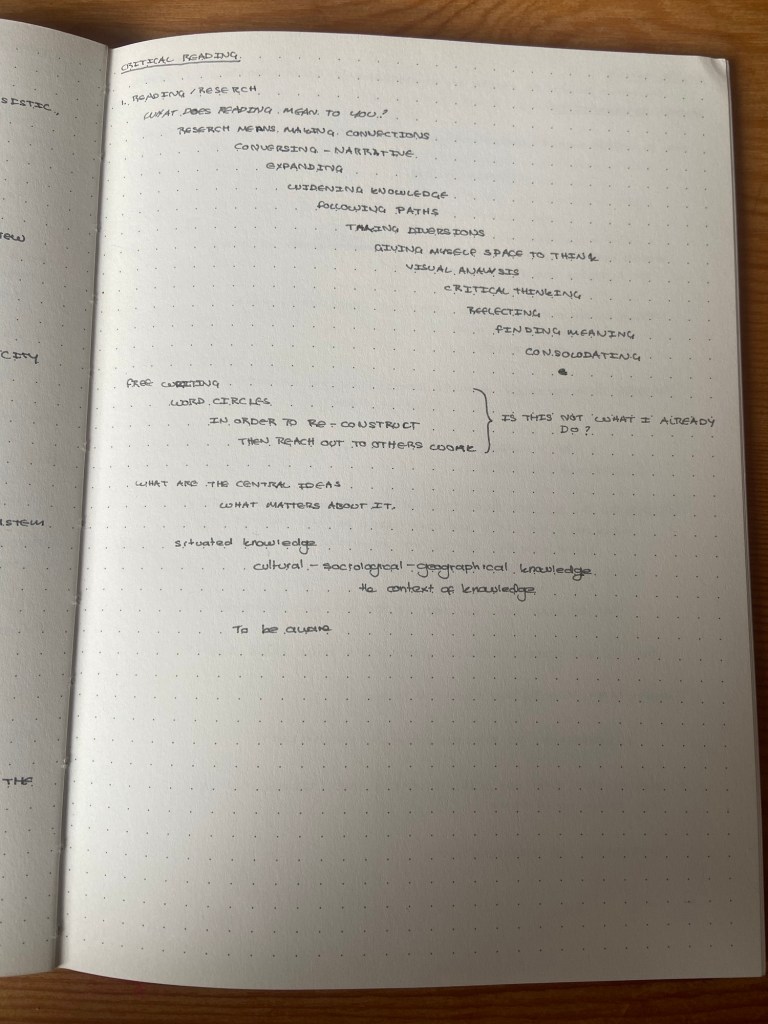 SISTIC,
CITY
THE
CRITICAL READING.
1. READING / RESERCH
WHAT DOES READING MEAN TO YOU?
RESERCH MEANS MAKING CONNECTIONS
CONVERSING - NARRATIVE.
EXPANDING
WIDENING KNOWLEDGE
FOLLOWING PATHS
TAKING DIVERSIONS
GIVING MYSELF SPACE TO THINK
VISUAL ANALYSIS
CRITICAL THINKING
REFLECTING
FINDING MEANING
CONSOLODATING
FREE WRITING
WORD CIRCLES
IN ORDER TO RE-CONSTRUCT
THEN REACH OUT TO OTHERS
IS THIS NOT WHAT I ALREADY
DO?
WHAT ARE THE CENTRAL IDEAS
WHAT MATTERS ABOUT IT.
situated knowledge
cultural - sociological - geographical knowledge
the context of knowledge
To be aware